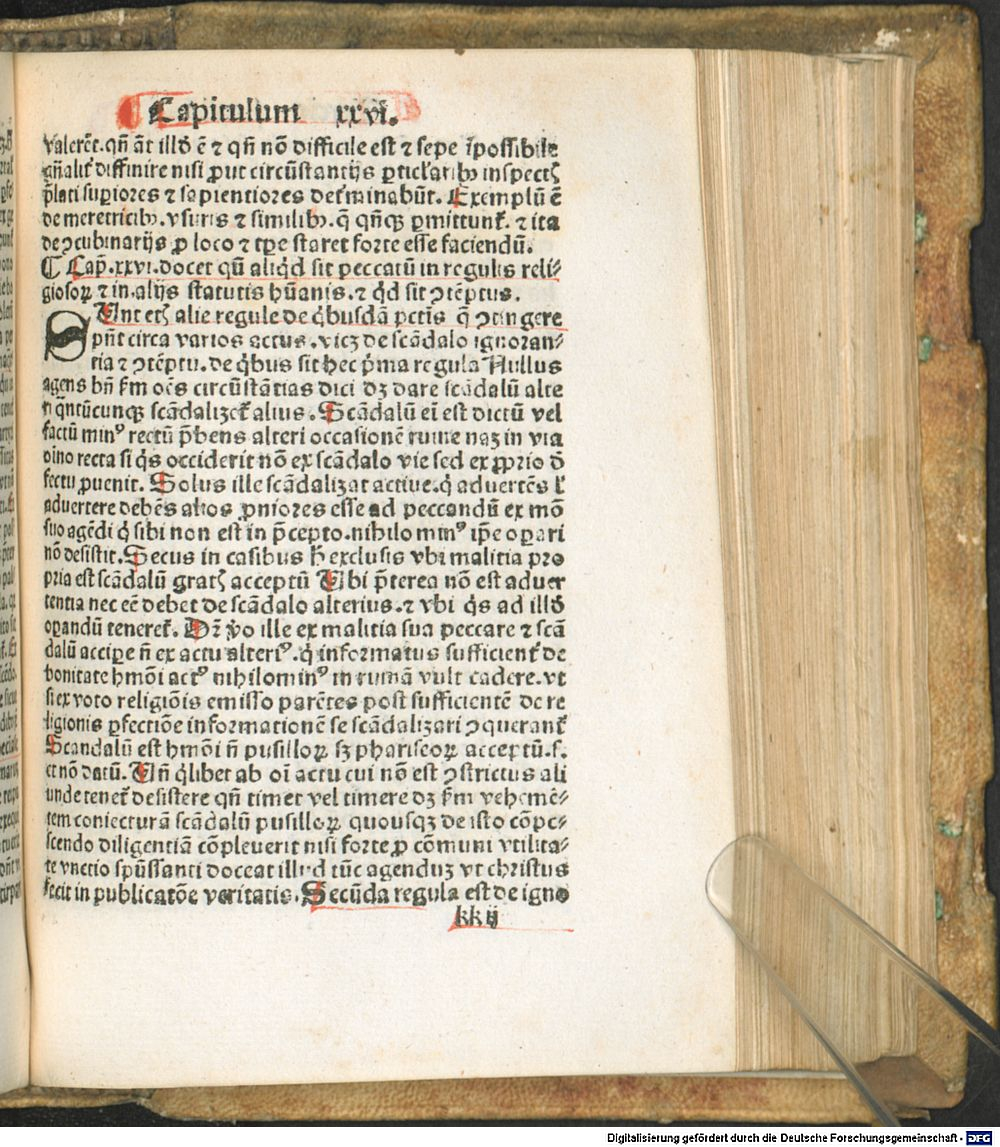 Capitulum xxvi.
valerēt. qn̄ āt illd̄ ē ⁊ qn̄ nō difficile est ⁊ sepe īpossibile
gn̄alit̄ diffinire nisi ꝓut circūstantijs ꝑticl̄aribꝰ inspectꝭ
p̄lati suꝑiores ⁊ sapientiores det̄minabūt. Exemplū ē
de meretricibꝰ. vsuris ⁊ similibꝰ. q̄ qn̄qꝫ ꝑmittunt̄. ⁊ ita
de ꝯcubinarijs ꝓ loco ⁊ tꝑe staret forte esse faciendū.
¶ Cap̄. xxvi. docet qn̄ aliqd̄ sit peccatū in regulis reli⸗
giosoꝝ ⁊ in alijs statutis hūanis. ⁊ qd̄ sit ꝯtēptus.
SUnt etꝭ alie regule de q̄busdā pctīs q̄ ꝯtingere
pn̄t circa varios actus. vicꝫ de scādalo ignoran⸗
tia ⁊ ꝯtēptu. de q̄bus sit hec p̄ma regula Nullus
agens bn̄ s̄m oēs circūstātias dici dꝫ dare scādalū alte
ri q̄ntūcunqꝫ scādalizet̄ alius. Scādalū ei est dictū vel
factū minꝰ rectū p̄bens alteri occasionē ruine naꝫ in via
oīno recta si q̄s occiderit nō ex scādalo vie sed ex ꝓprio d̄
fectu ꝓuenit. Solus ille scādalizat actiue. q̄ aduertēs l̄
aduertere debēs alios ꝓniores esse ad peccandū ex mō
suo agēdi q̄ sibi non est in p̄cepto. nihilo minꝰ ip̄e oꝑari
nō desistit. Secus in casibus h̄ exclusis vbi malitia pro
pria est scādalū gratꝭ acceptū Ubi p̄terea nō est aduer
tentia nec eē debet de scādalo alterius. ⁊ vbi q̄s ad illd̄
oꝑandū teneret̄. Dr̄ v̄o ille ex malitia sua peccare ⁊ scā
dalū accipe n̄ ex actu alteriꝰ. q̄ informatus sufficient̄ de
bonitate hmōi actꝰ nihilominꝰ in ruinā vult cadere. vt
si ex voto religiōis emisso parētes post sufficientē de re
ligionis ꝑfectiōe informationē se scādalizari ꝯquerant̄
Scandalū est hmōi n̄ pusilloꝝ sꝫ phariseoꝝ acceptū. s.
et nō datū. Un̄ q̄libet ab oī actu cui nō est ꝯstrictus ali
unde tenet̄ desistere qn̄ timet vel timere dꝫ s̄m vehemē⸗
tem coniecturā scādalū pusilloꝝ quousqꝫ de isto cōpe⸗
scendo diligentiā cōpleuerit nisi forte ꝓ cōmuni vtilita⸗
te vnctio spūssanti doceat illud tūc agenduꝫ vt christus
fecit in publicatōe veritatis. Secūda regula est de igno
kk ij
Digitalisierung gefördert durch die Deutsche Forschungsgemeinschaft - DFG